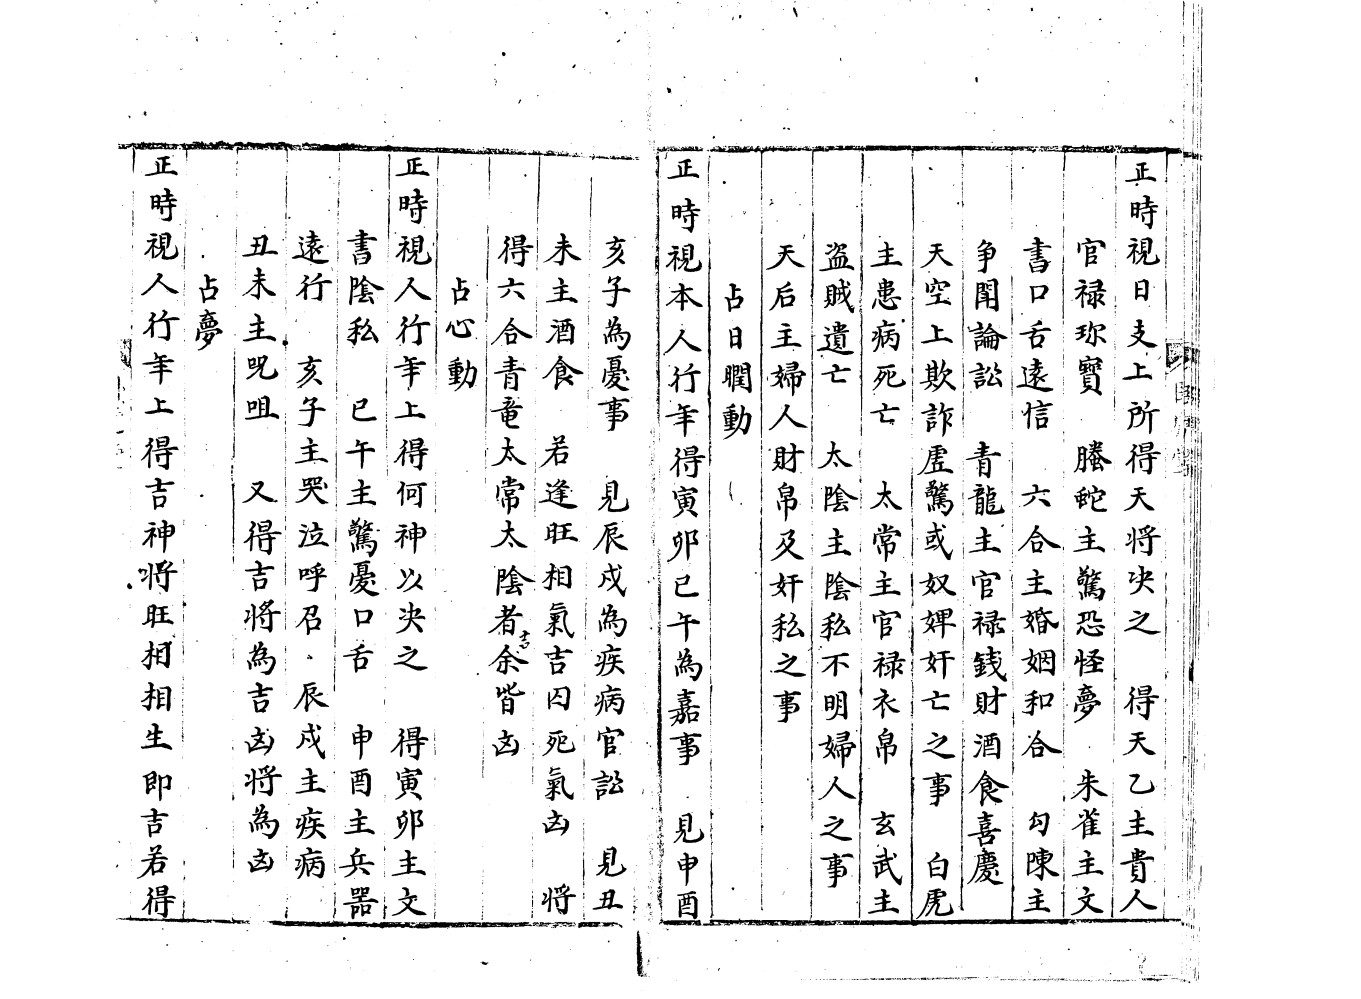 正時視日支上所得天将决之　得天乙主貴人
官禄珎寳　螣蛇主驚恐怪夢　朱雀主文
書口舌遠信　六合主婚姻和合　勾陳主
争閗論訟　青龍主官禄銭財酒食喜慶
天空上欺詐虗驚或奴婢奸亡之事　白虎
主患病死亡　太常主官禄衣帛　玄武主
盗賊遺亡　太陰主陰私不明婦人之事
天后主婦人財帛及奸私之事
占日瞤動
正時視本人行年得寅卯巳午為嘉事　見申酉
亥子為憂事　見辰戌為疾病官訟　見丑
未主酒食　若逢旺相氣吉囚死氣凶　将
得六合青竜太常太陰者吉余皆凶
占心動
正時視人行年上得何神以决之　得寅卯主文
書陰私　巳午主驚憂口舌　申酉主兵噐
遠行　亥子主哭泣呼召　辰戌主疾病
丑未主咒咀　又得吉将為吉凶将為凶
占夢
正時視人行年上得吉神将旺相相生即吉若得